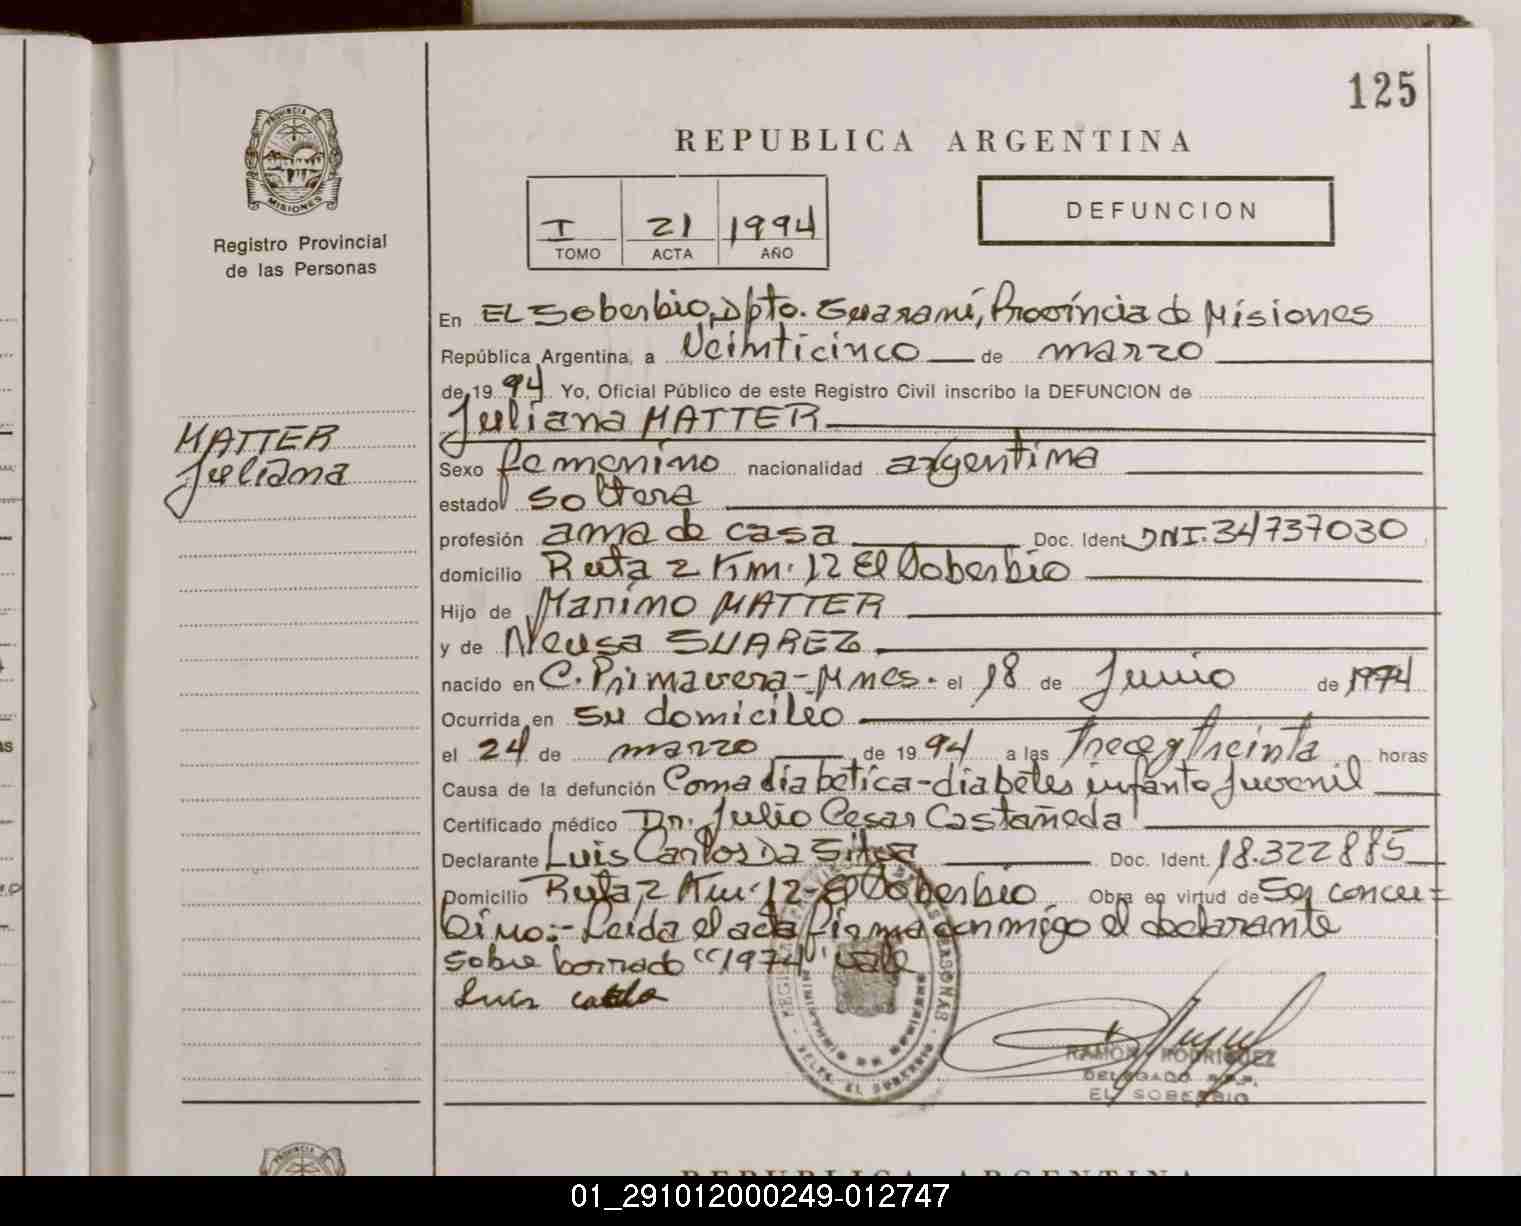 125
REPUBLICA ARGENTINA
PROVINCIA DE
MISIONES
Registro Provincial
de las Personas
I 21 1994
TOMO ACTA AÑO
DEFUNCION
En EL Soberbio, Dpto. Guaraní, Provincia de Misiones
República Argentina, a Veinticinco de marzo
de 1994 Yo, Oficial Público de este Registro Civil inscribo la DEFUNCION de
Juliana MATTER
MATTER
Juliana
Sexo femenino nacionalidad argentina
estado soltera
profesión ama de casa Doc. Ident. DNI: 34737030
domicilio Ruta 2 Km. 12 El Soberbio
Hijo de Marimo MATTER
y de Neusa SUAREZ
nacido en C. Primavera - Mnes. el 18 de Junio de 1974
Ocurrida en su domicilio
el 24 de marzo de 1994 a las Trece y treinta horas
Causa de la defunción Coma diabetica - diabetes infanto Juvenil
Certificado médico Dr. Julio Cesar Castañeda
Declarante Luis Carlos Da Silva Doc. Ident. 18.322885
Domicilio Ruta 2 Km. 12 El Soberbio Obra en virtud de Ser concu=
bino:- Leída el acta firma conmigo el declarante
sobre borrado "1974" vale
Luis
RAMON RODRIGUEZ
DELEGADO R.P.P.
EL SOBERBIO
REPUBLICA ARGENTINA
01_291012000249-012747